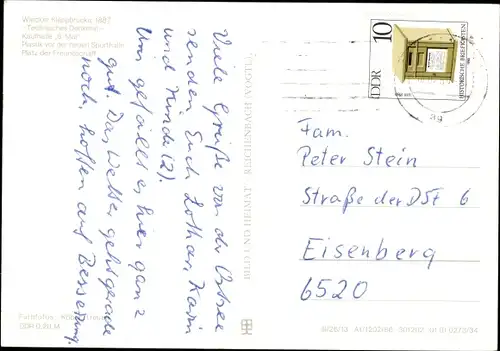 Wecker Klappbrücke 1887
Technisches Denkmal
Kaufhalle "9. Mai"
Plastik vor der neuen Sporthalle
Platz der Freundschaft
Viele Grüße von der Ostsee
senden Euch Lothar, Karin
und Kinder (2).
Uns gefällt es hier ganz
gut. Das Wetter geht gerade
noch, hoffen auf Besserung.
BILD UND HEIMAT REICHENBACH (VOGTL)
DDR 0,20 M
DDR
10
HISTORISCHE BRIEFKÄSTEN
ag
Fam.
Peter Stein
Straße der DSF 6
Eisenberg
6520
01 01 0272/34